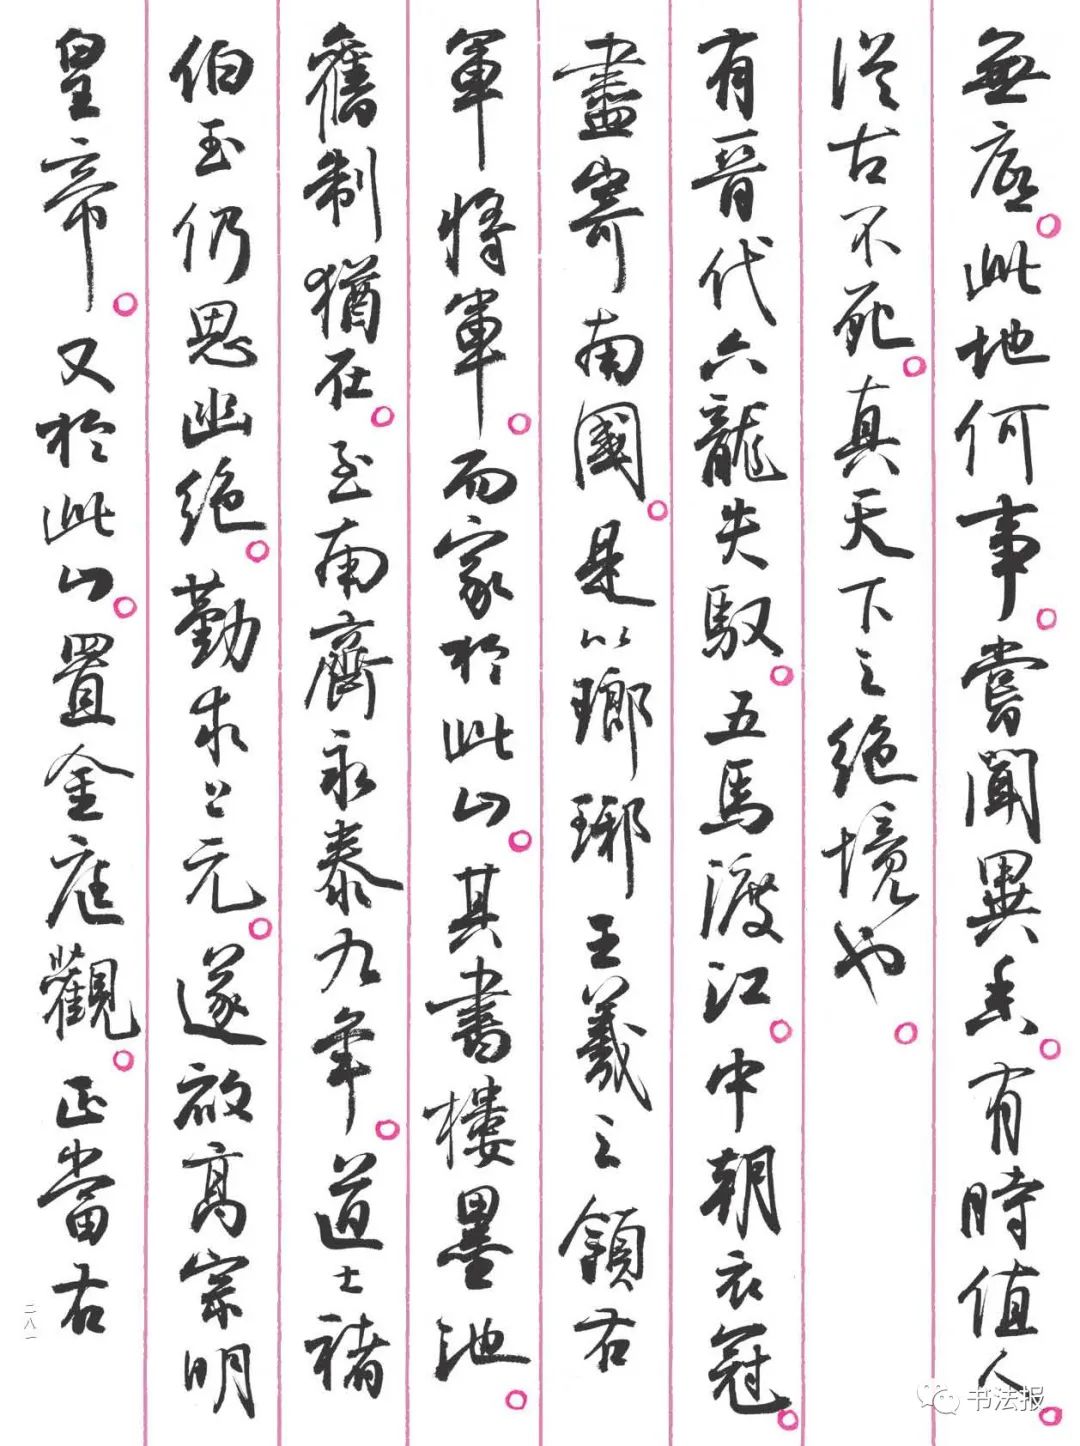 無底此地何事嘗聞異香有時值人
從古不死真天下之絕境也
有晉代六龍失馭五馬渡江中朝衣冠
盡寄南國是以瑯琊王羲之領右
軍將軍而家於此山其書樓墨池
舊制猶在至南齊永泰九年道士褚
伯玉仍思幽絕勤求上元遂啟高宗明
皇帝又於此山置金庭觀正當右
二八一
书法报